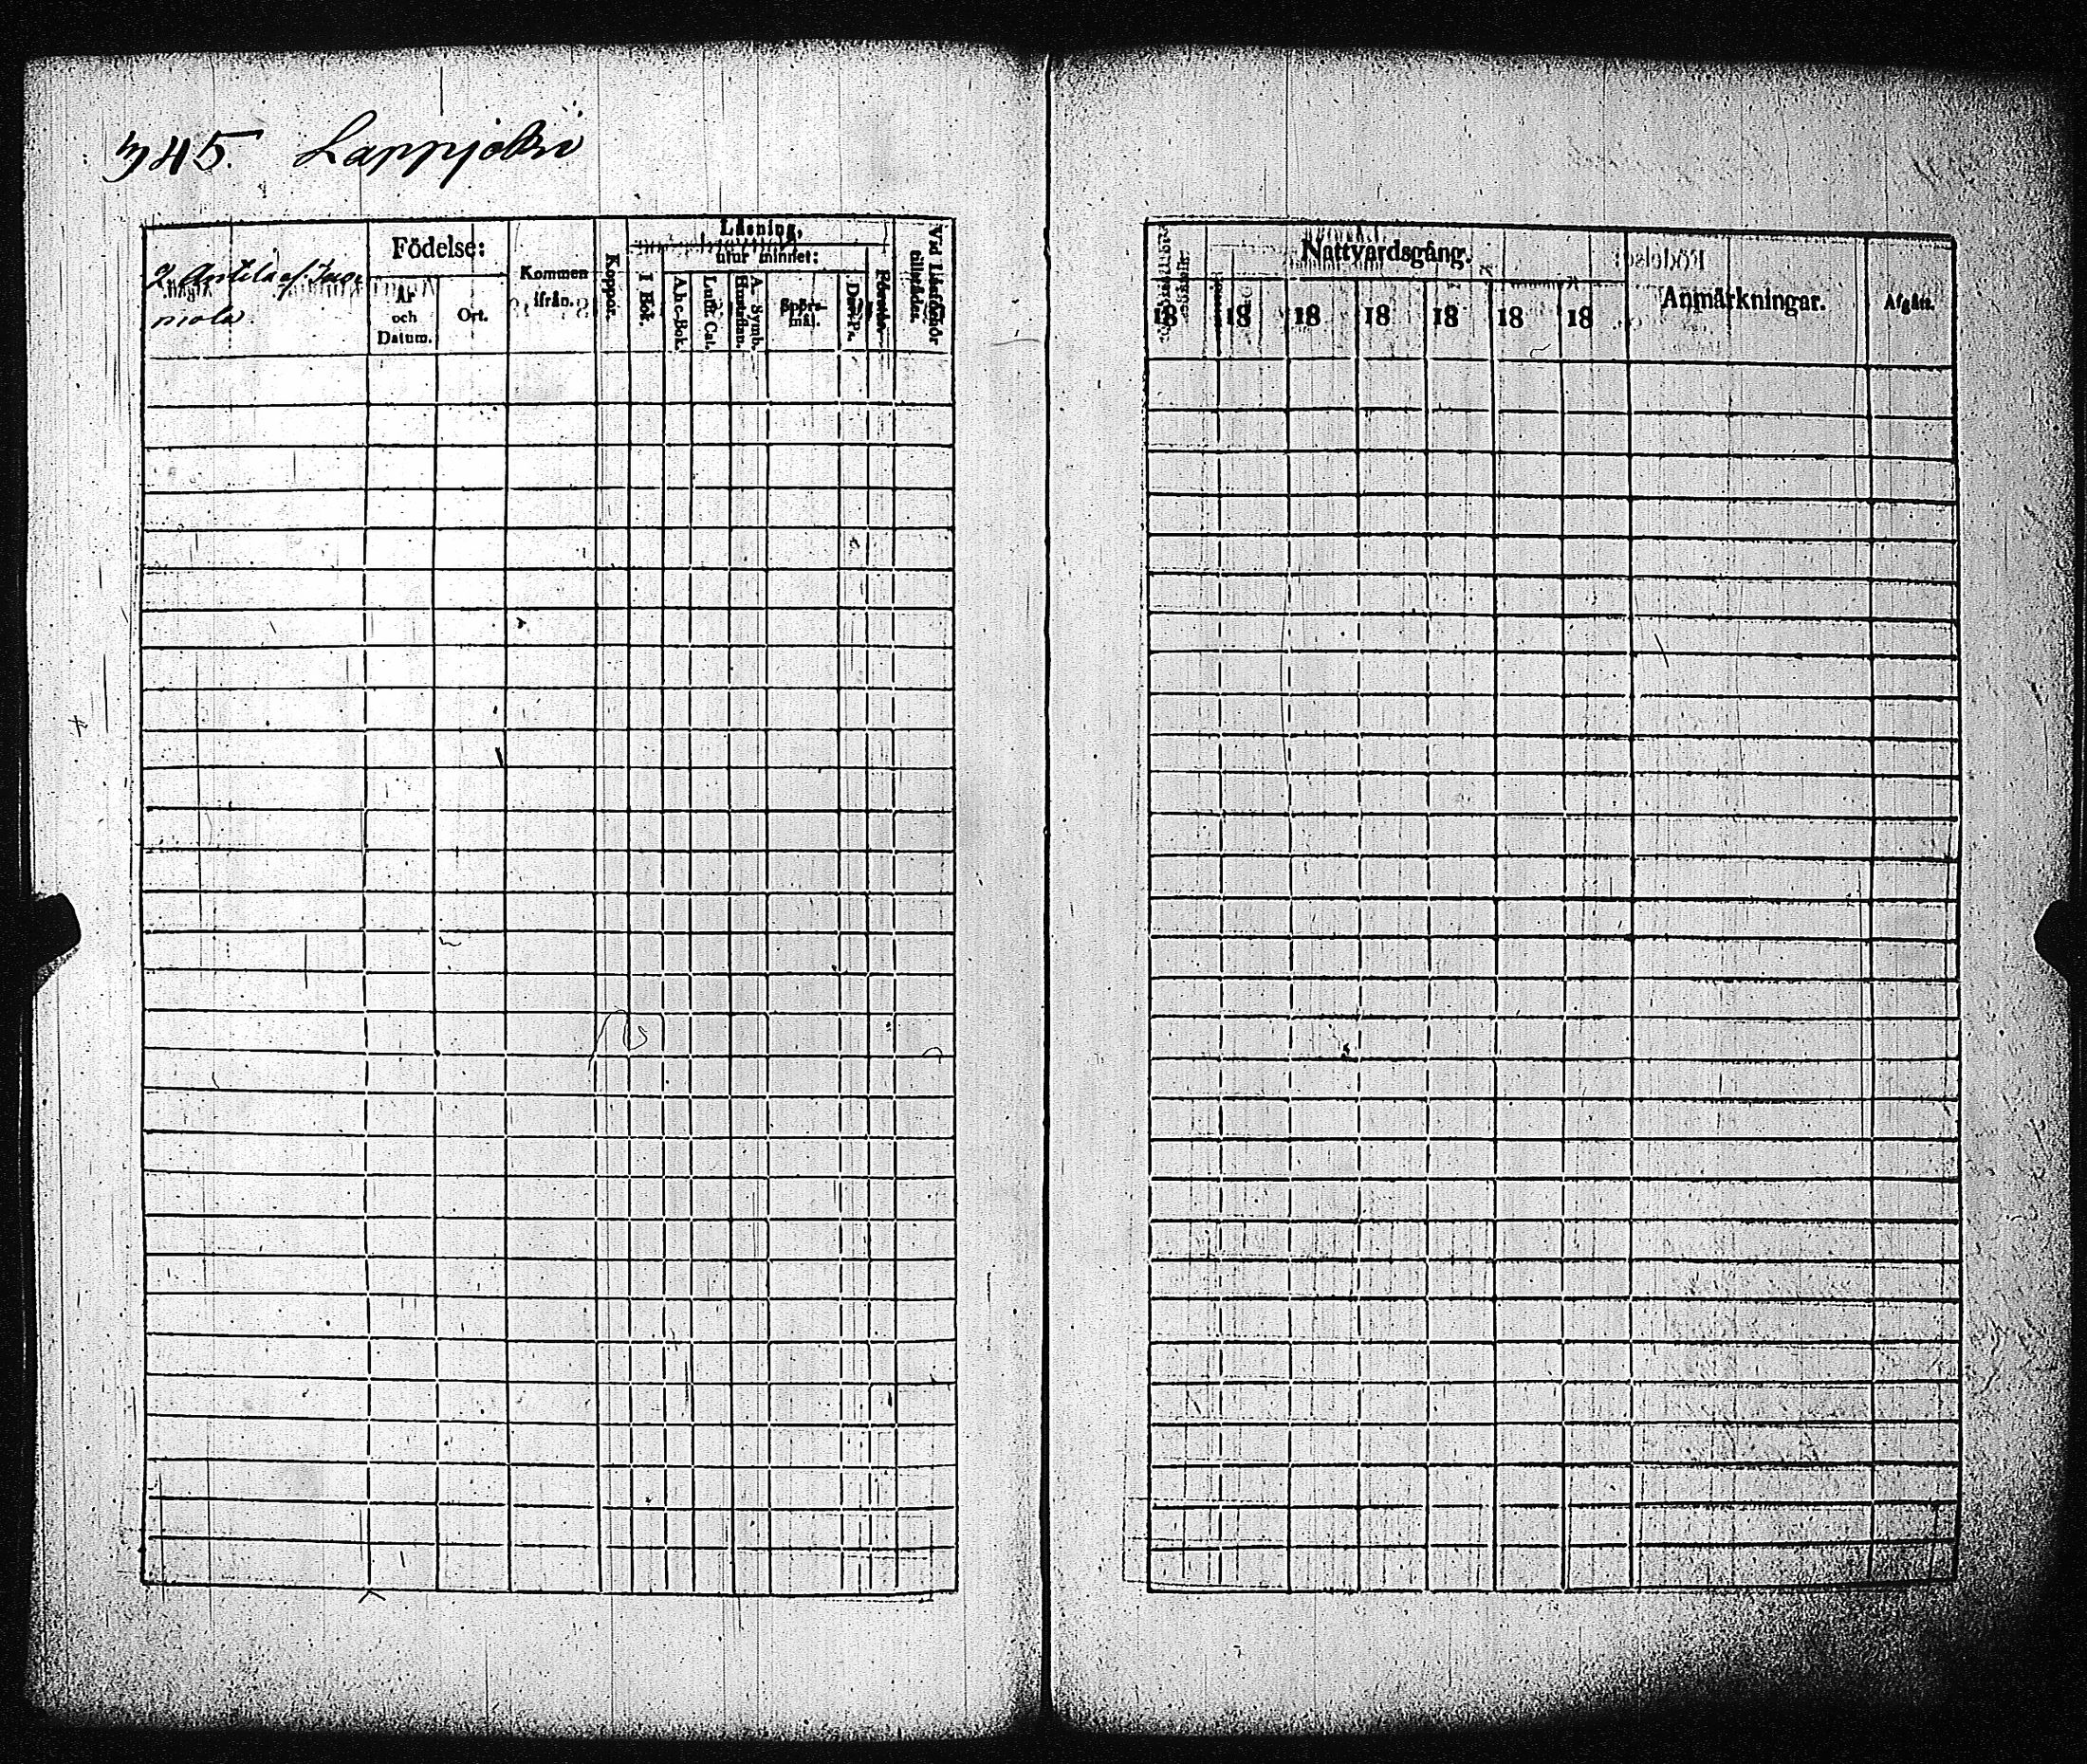 345. Lappjoki
2. Anttila af Tuo-
mola.
Födelse:
År
och
Datum.
Ort.
Kommen
ifrån.
Koppor.
Läsning,
utur minnet:
I Bok.
A.b.c.-Bok.
Luth. Cat.
A. Symb.
Hustaflan.
Spörs-
mål.
Dav. Ps.
Förstår
Vid Läsförhör
tillstädes.
Nattvardsgång.
18 18 18 18 18 18 18
Anmärkningar.
Afgått.